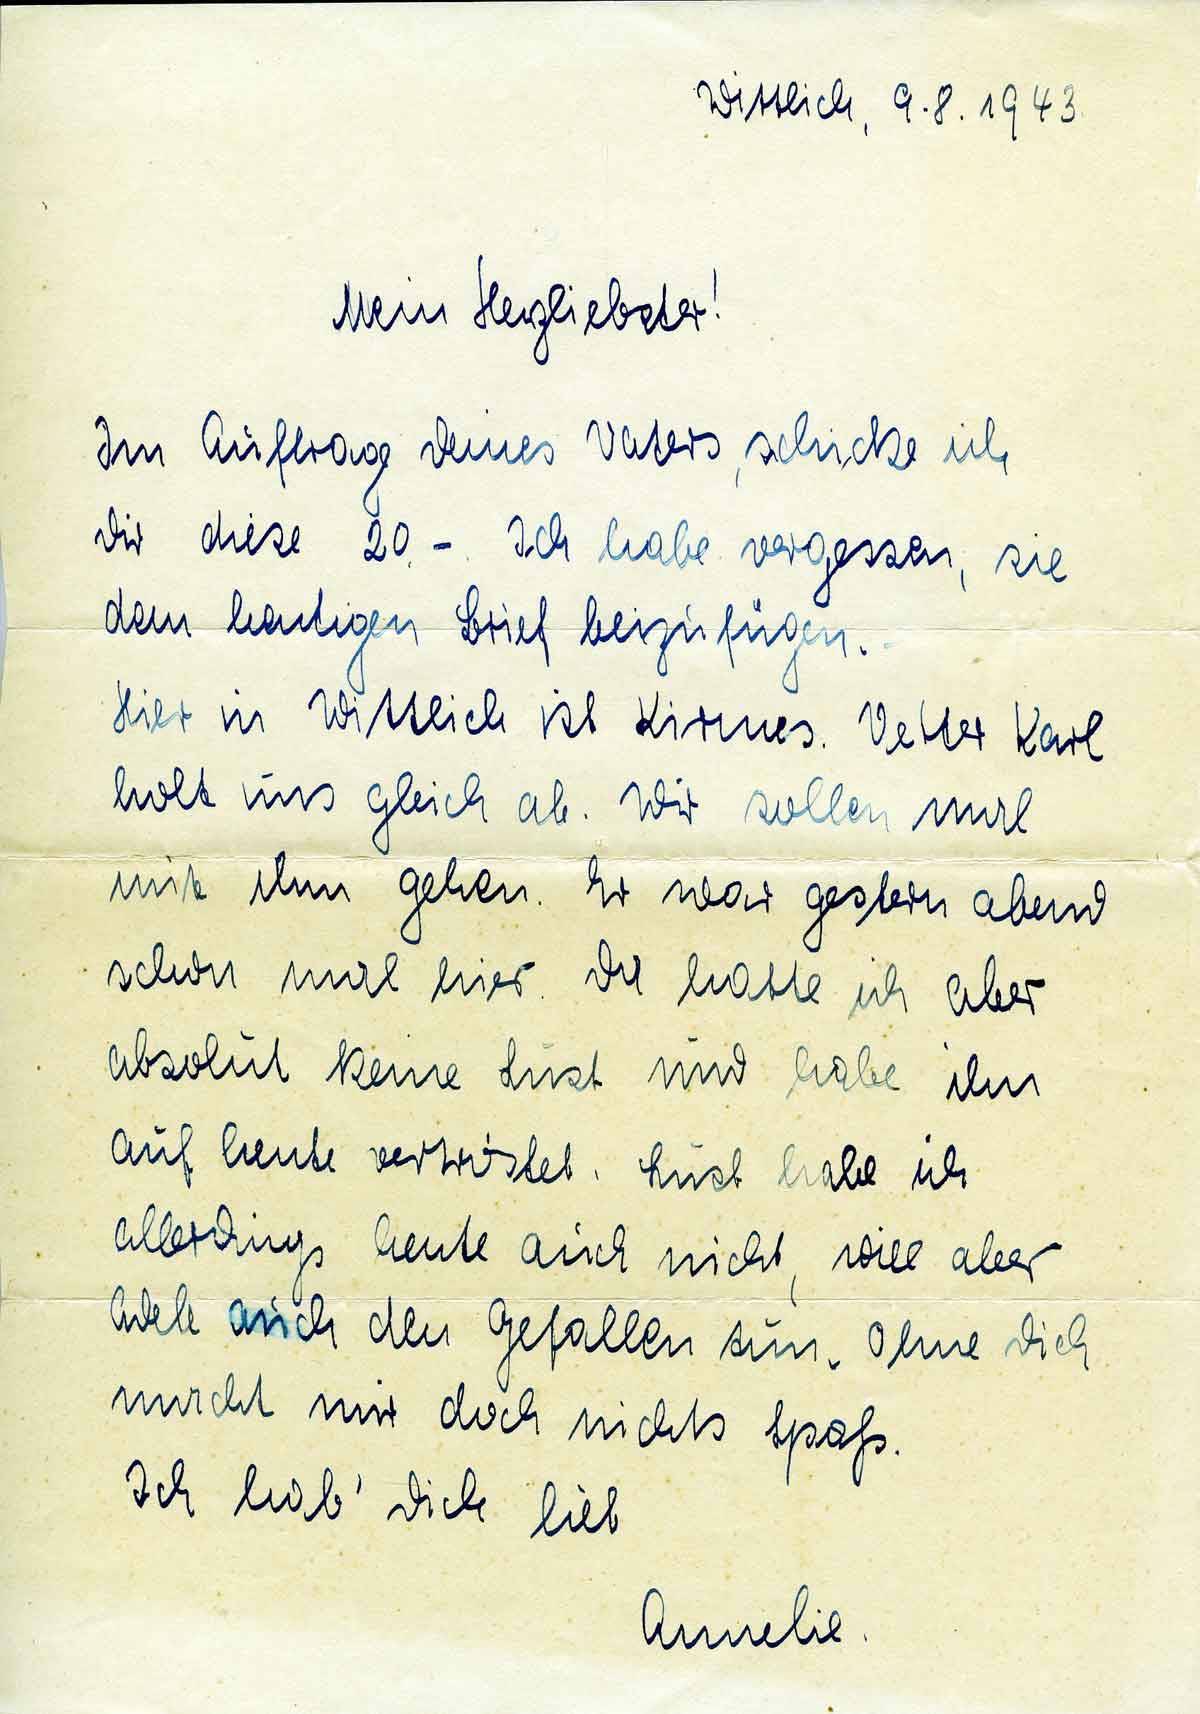 Wittlich, 9.8.1943.
Mein Herzliebster!
Im Auftrage Deines Vaters, schicke ich
Dir diese 20.-. Ich habe vergessen, sie
dem heutigen Brief beizufügen.
Hier in Wittlich ist Kirmes. Vetter Karl
holt uns gleich ab. Wir sollen mal
mit ihm gehen. Er war gestern abend
schon mal hier. Da hatte ich aber
absolut keine Lust und habe ihn
auf heute vertröstet. Lust habe ich
allerdings heute auch nicht, will aber
auch den Gefallen tun. Ohne Dich
macht mir doch nichts Spaß.
Ich hab' Dich lieb
Annelie.